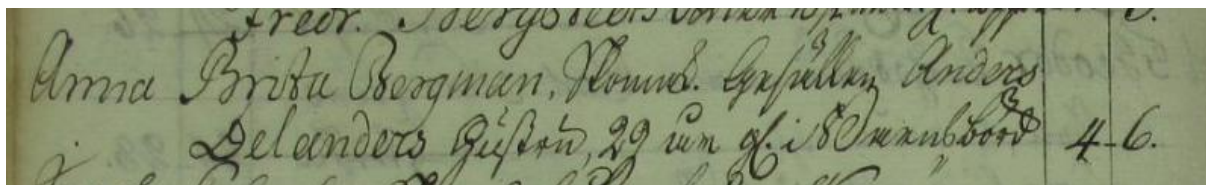 Fredr. Bergströms
Anna Brita Bergman, Skomak. Gesällen Anders
Delanders Hustru, 29 år gl. i Barnsbörd 4 6.